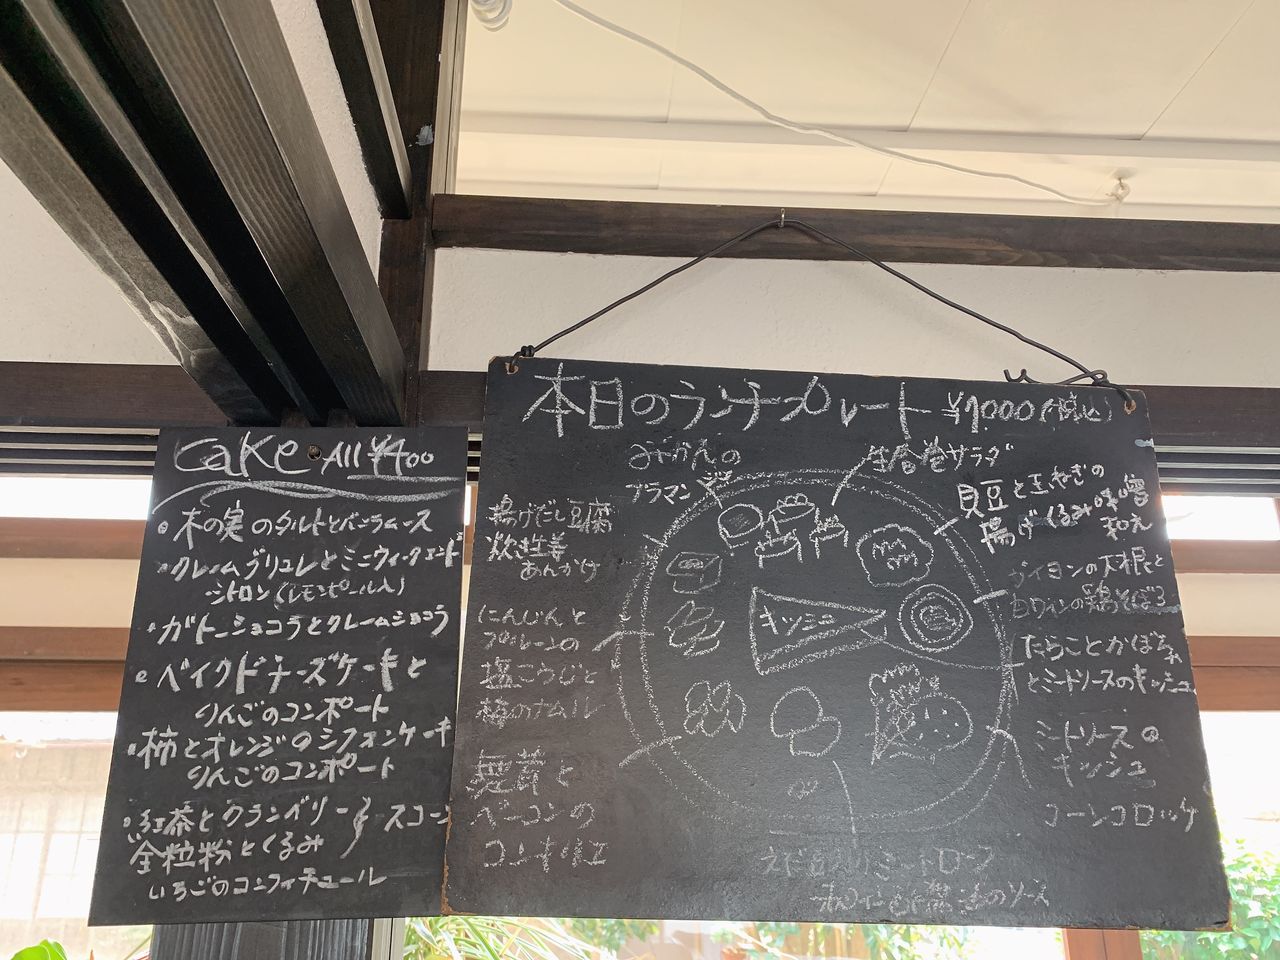 cake All ¥400
・木の実のタルトとバニラムース
・クレームブリュレとミニウィークエンド
シトロン(レモンピール入)
・ガトーショコラとクレームショコラ
・ベイクドチーズケーキと
りんごのコンポート
・柿とオレンジのシフォンケーキ
りんごのコンポート
・紅茶とクランベリー
スコーン
全粒粉とくるみ
いちごのコンフィチュール
本日のランチプレート ¥1,000(税込)
みかんの
ブラマンジェ
生春巻サラダ
揚げだし豆腐
生姜
あんかけ
にんじんと
プルーンの
塩こうじと
ナムル
舞茸と
ベーコンの
キッシュ
枝豆と玉ねぎの
揚げくるみ味噌
和え
大根と
白ワインの鶏そぼろ
たらことかぼちゃ
とミートソースのキッシュ
ミートソースの
キッシュ
コーンコロッケ
ミートローフ
のソース